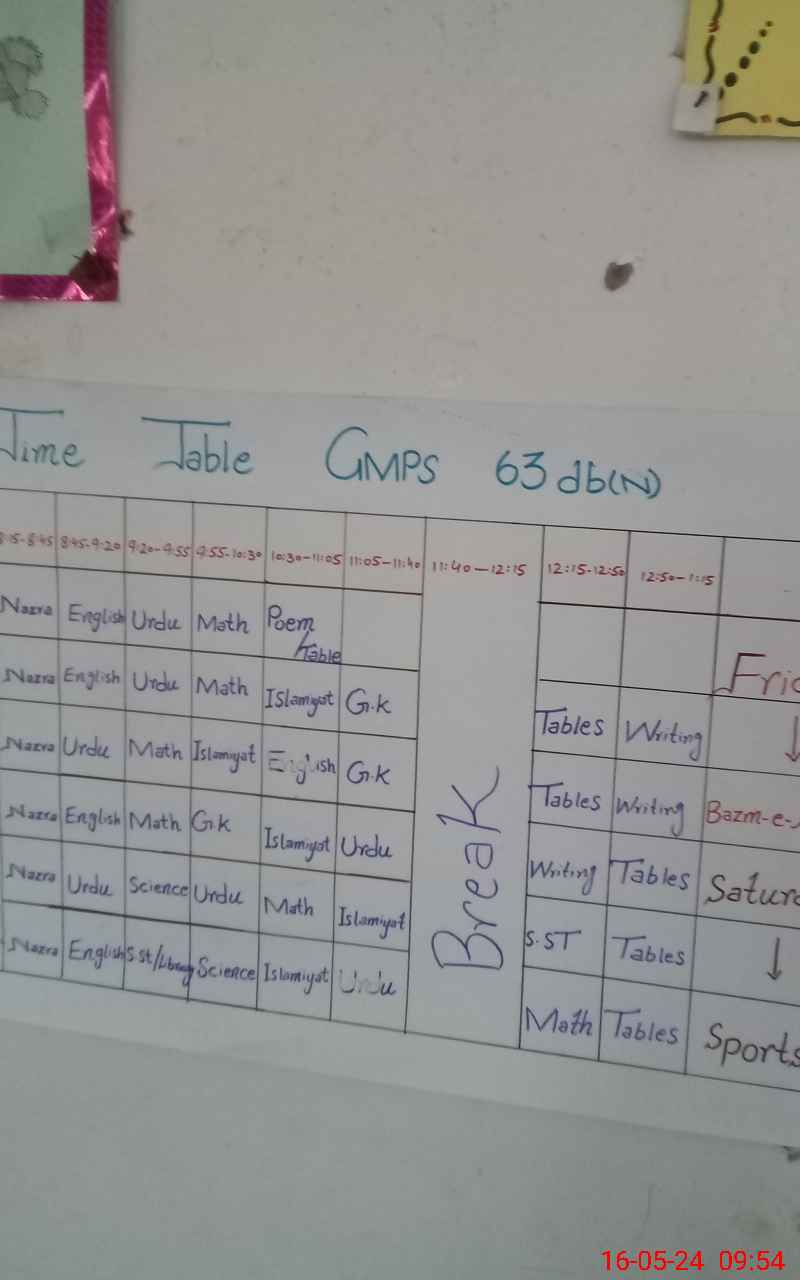 Time Table GMPS 63 db(N)
8:15-8:45 8:45-9:20 9:20-9:55 9:55-10:30 10:30-11:05 11:05-11:40 11:40-12:15 12:15-12:50 12:50-1:15
Nazra English Urdu Math Poem
Table
Nazra English Urdu Math ISlamiyat G.K Tables Writing
Nazra Urdu Math Islamiyat English G.K Tables Writing Bazm-e-
Nazra English Math G.K Islamiyat Urdu Writing Tables
Nazra Urdu Science Urdu Math Islamiyat S.ST Tables ↓
Nazra English S.st/Library Science Islamiyat Urdu Math Tables Sports
Break
16-05-24 09:54